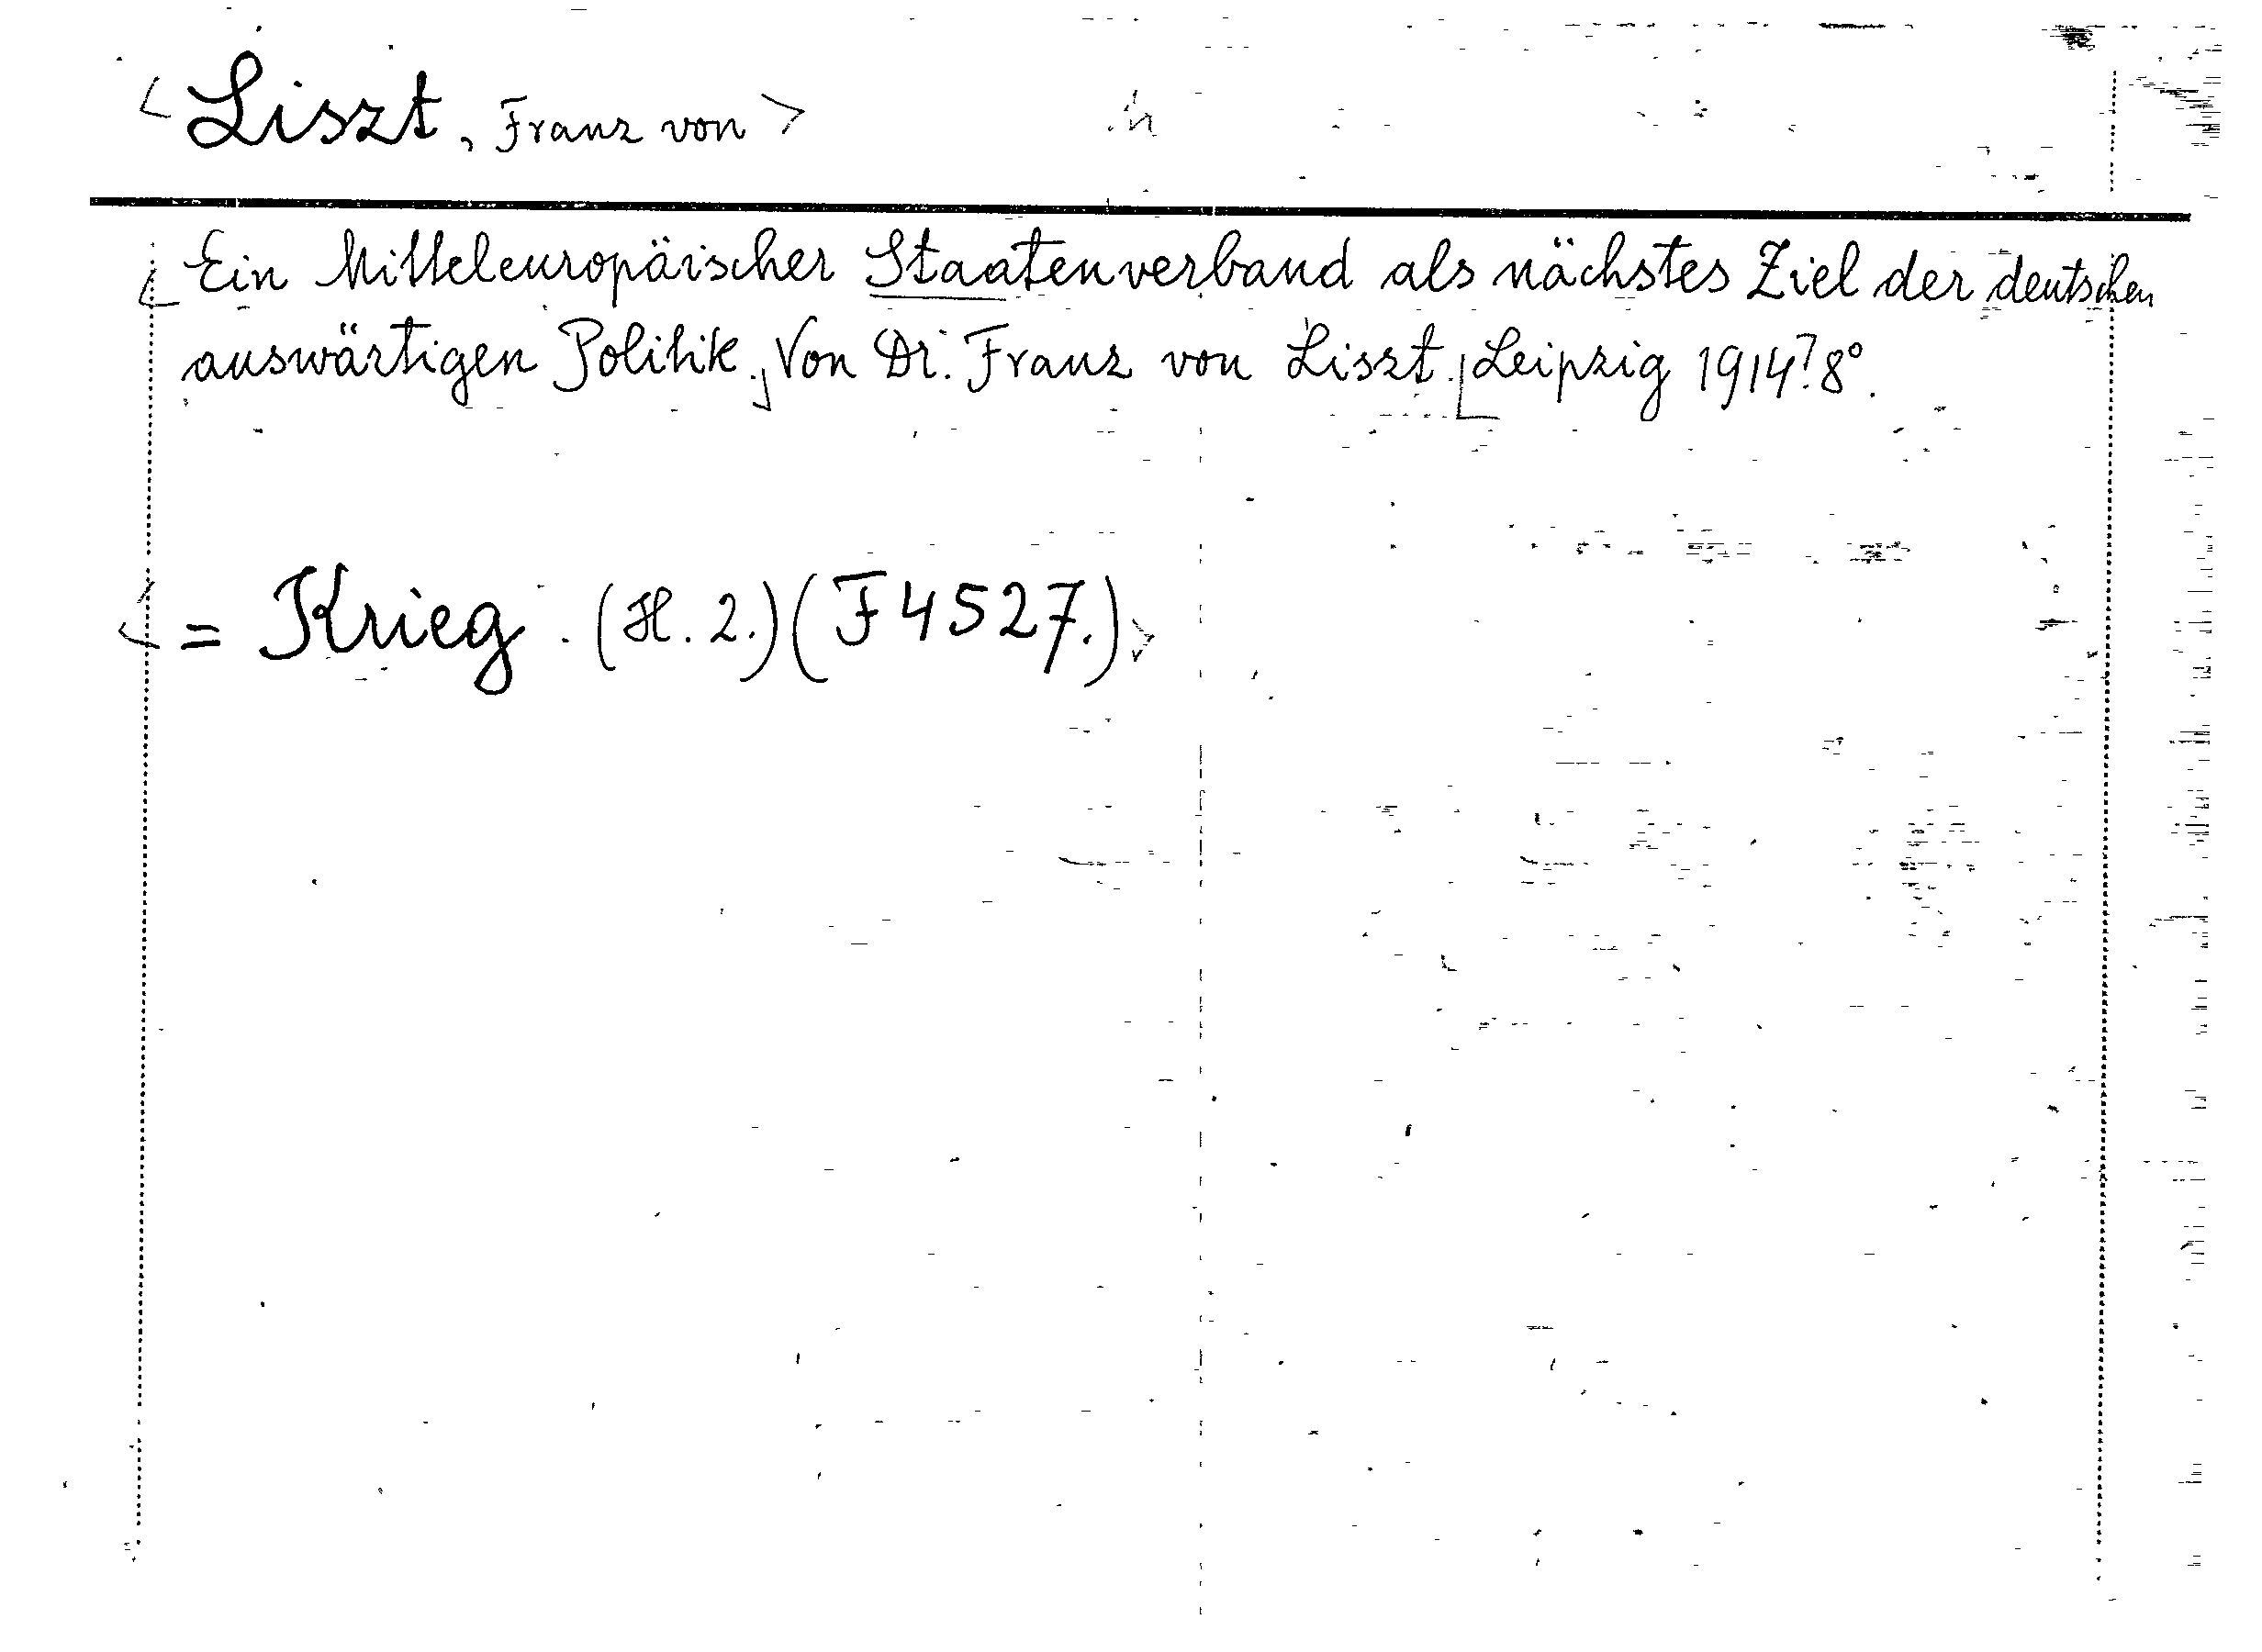 <Liszt, Franz von>
Ein Mitteleuropäischer Staatenverband als nächstes Ziel der deutschen
auswärtigen Politik. Von Dr. Franz von Liszt. Leipzig 1914? 8°.
<= Krieg. (H. 2.) (F 4527.)>